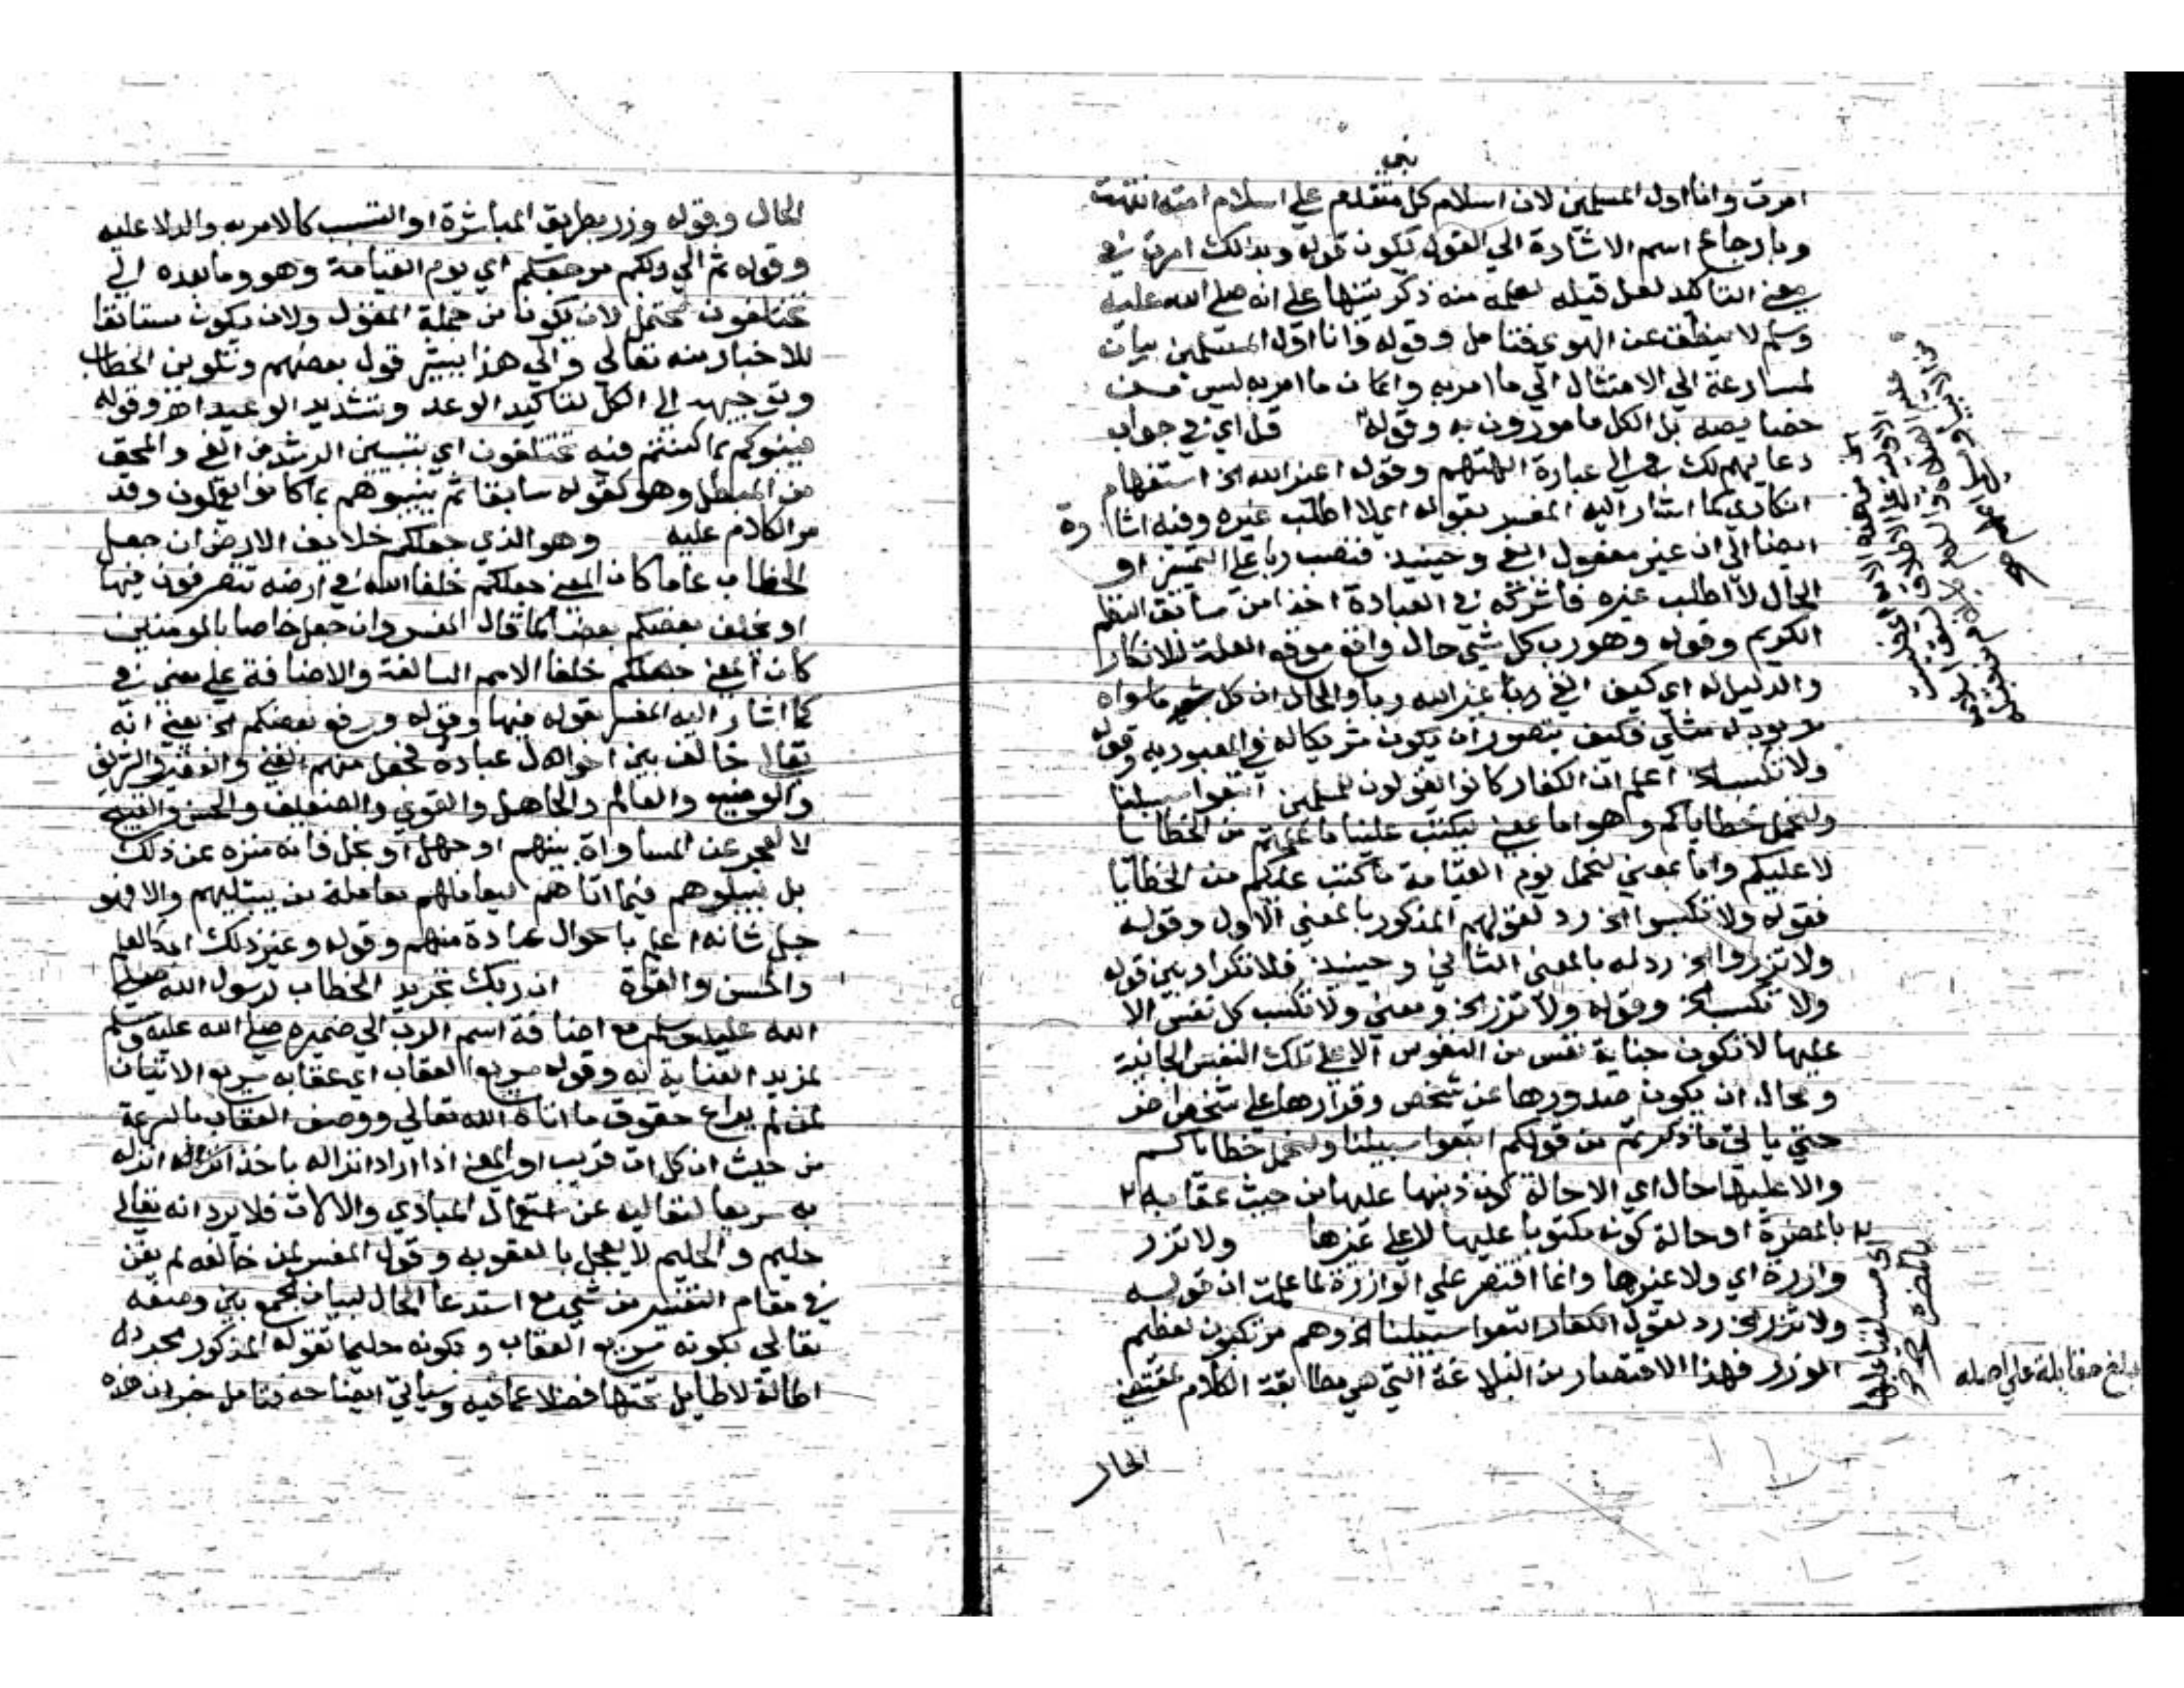 نبي
امرت وانا اول المسلمين لان اسلام كل متقدم علي اسلام امته انتهت
وبارجاع اسم الاشارة الي القول تكون قوله وبذلك امرت في
معني التاكيد لعل قبله لعله منه ذكر تنبيها علي انه صلي الله عليه
وسلم لا ينطق عن الهوي فتامل وقوله وانا اول المسلمين بيان
لمسارعته الي الامتثال الي ما امر به وان كان ما امر به ليس من
خصايصه بل الكل مامورون به وقوله قل اي في جواب
دعايهم لك الي عبارة الهتهم وقوله اغير الله الخ استفهام
انكاري كما اشار اليه المفسر بقوله اي لا اطلب غيره وفيه اشارة
ايضا الي ان غير مفعول ابغي وحينيذ فنصب ربا علي التمييز او
الحال لا اطلب غيره فاشركه في العبادة اخذا من سابق النظم
الكريم وقوله وهو رب كل شي حال واقع موقع العلة للانكار
والدليل له اي كيف ابغي ربا غير الله ربا والحال ان كل ما سواه
مربوب له مثلي فكيف يتصور ان يكون شريكا له في المعبودية وقوله
ولا تكسب الخ اعلم ان الكفار كانوا يقولون للمسلمين اتبعوا سبيلنا
ولنحمل خطاياكم وهو اما بمعني ليكتب علينا ما عملتم من الخطايا
لا عليكم واما بمعني لنحمل يوم القيامة ما كتب عليكم من الخطايا
فقوله ولا تكسب الخ رد لقولهم المذكور بالمعني الاول وقوله
ولا تزر الخ رد له بالمعني الثاني وحينيذ فلا تكرار بين قوله
ولا تكسب الخ وقوله ولا تزر الخ ومعني ولا تكسب كل نفس الا
عليها لا تكون جناية نفس من النفوس الا علي تلك النفس الجانية
ومحال ان يكون صدورها عن شخص وقرارها علي شخص اخر
حتي ياتي ما ذكرتم من قولكم اتبعوا سبيلنا ولنحمل خطاياكم
والا عليها حال اي الا حالة كون ذنبها عليها من حيث عقابه
بالمضرة او حالة كونه مكتوبا عليها لا علي غيرها ولا تزر
وازرة اي ولا غيرها وانما اقتصر علي الوازرة لما علمت ان قوله
ولا تزر الخ رد لقول الكفار اتبعوا سبيلنا الخ وهم مرتكبون لعظيم
الوزر فهذا الاقتصار من البلاغة التي هي مطابقة الكلام لمقتضي
الحال
بلغ مقابلة علي اصله
الحال وقوله وزر بطريق المباشرة او التسبب كالامر به والدلالة عليه
وقوله ثم الي ربكم مرجعكم اي يوم القيامة وهو وما بعده الي
تختلفون يحتمل لان يكونا من جملة المقول ولان يكون مستانفا
للاخبار منه تعالي والي هذا يشير قول بعضهم وتلوين الخطاب
وتوجيهه الي الكل لتاكيد الوعد وتشديد الوعيد اهـ وقوله
فينبئكم بما كنتم فيه تختلفون اي بتبيين الرشد من الغي والمحق
من المبطل وهو كقوله سابقا ثم ينبيهم بما كانوا يفعلون وقد
مر الكلام عليه وهو الذي جعلكم خلايف الارض ان جعل
الخطاب عاما كان المعني جعلكم خلفا الله في ارضه تتصرفون فيها
او يخلف بعضكم بعضا كما قال المفسر وان جعل خاصا بالمومنين
كان المعني جعلكم خلفا الامم السالفة والاضافة علي معني في
كما اشار اليه المفسر بقوله فيها وقوله ورفع بعضكم الخ يعني انه
تعالي خالف بين احوال عباده فجعل منهم الغني والفقير والشريف
والوضيع والعالم والجاهل والقوي والضعيف والحسن والقبيح
لا لعجز عن المساواة بينهم او جهل او بخل فانه منزه عن ذلك
بل ليبلوهم فيما اتاهم ليعاملهم معاملة من يبتليهم والا فهو
جل شانه اعلم باحوال عباده منهم وقوله وغير ذلك اي كالعلم
والحسن والقوة ان ربك تجريد الخطاب لرسول الله صلي
الله عليه وسلم مع اضافة اسم الرب الي ضميره صلي الله عليه وسلم
لمزيد العناية له وقوله سريع العقاب اي عقابه سريع الاتيان
لمن لم يراع حقوق ما اتاه الله تعالي ووصف العقاب بالسرعة
من حيث ان كل ات قريب او المعني اذا اراد انزاله
به سريعا لتعاليه عن استعمال المبادي والالات فلا يرد انه تعالي
حليم والحليم لا يعجل بالعقوبة وقول المفسر لمن خالفه لم يغن
في مقام التفسير من شي مع استدعا الحال لبيان الجمع بين وصفه
تعالي بكونه سريع العقاب وبكونه حليما بقوله المذكور مجرد
اطالة لا طايل تحتها فضلا عما فيه وسياتي ايضاحه فتامل خيران هذه